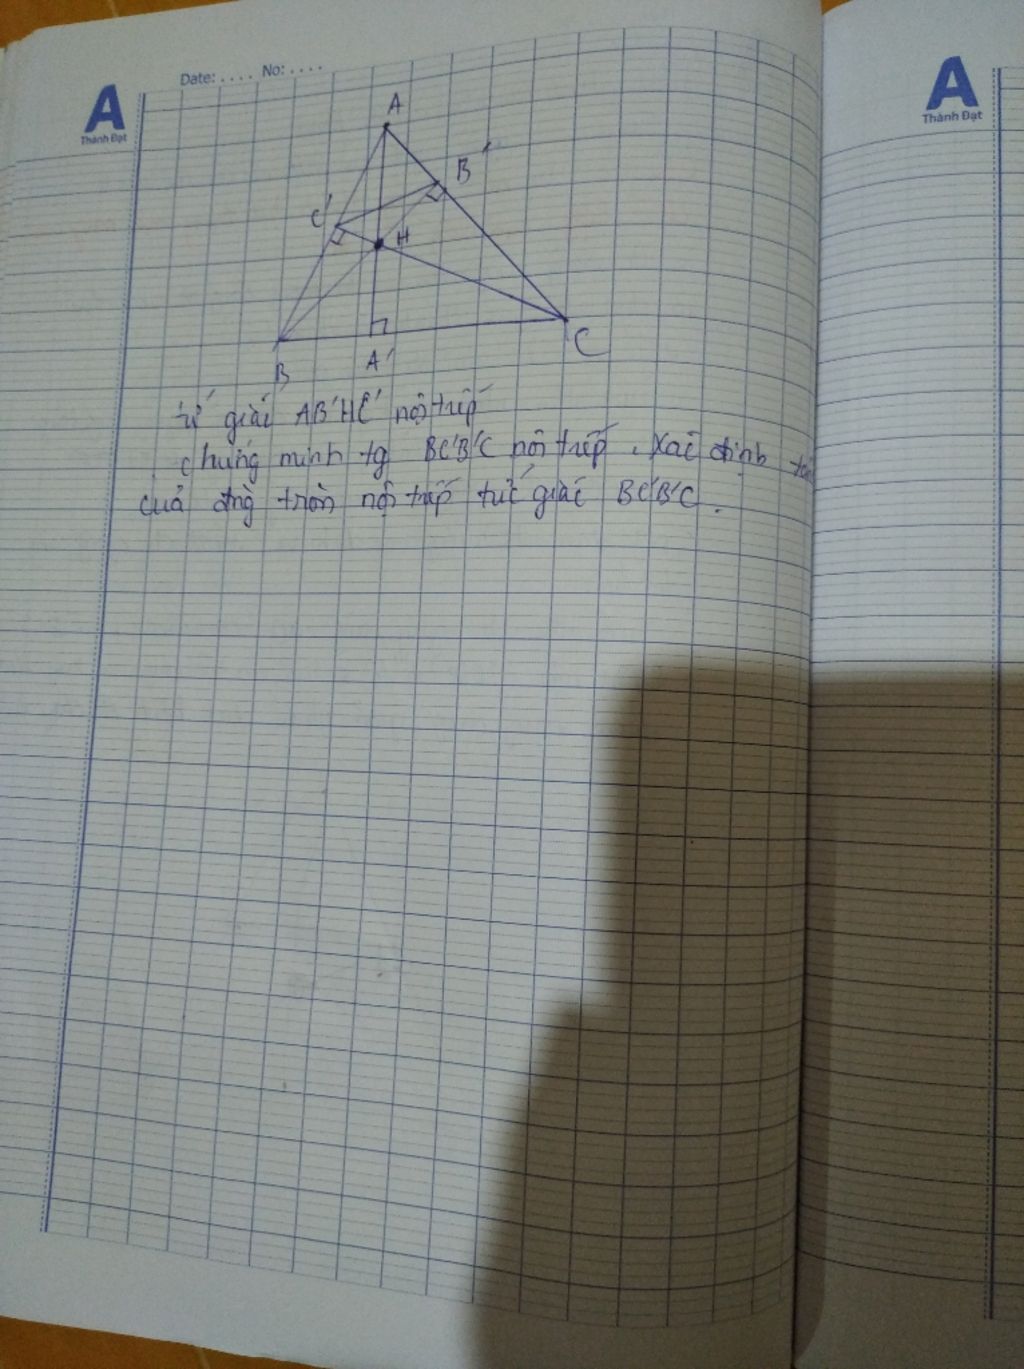 A
Thành Đạt
Date: .... No: ....
A
Thành Đạt
A
B'
C'
H
B
A'
C
tứ giác AB'HC' nội tiếp
chứng minh tg BC'B'C nội tiếp. Xác định
của đng tròn nội tiếp tứ giác BC'B'C.